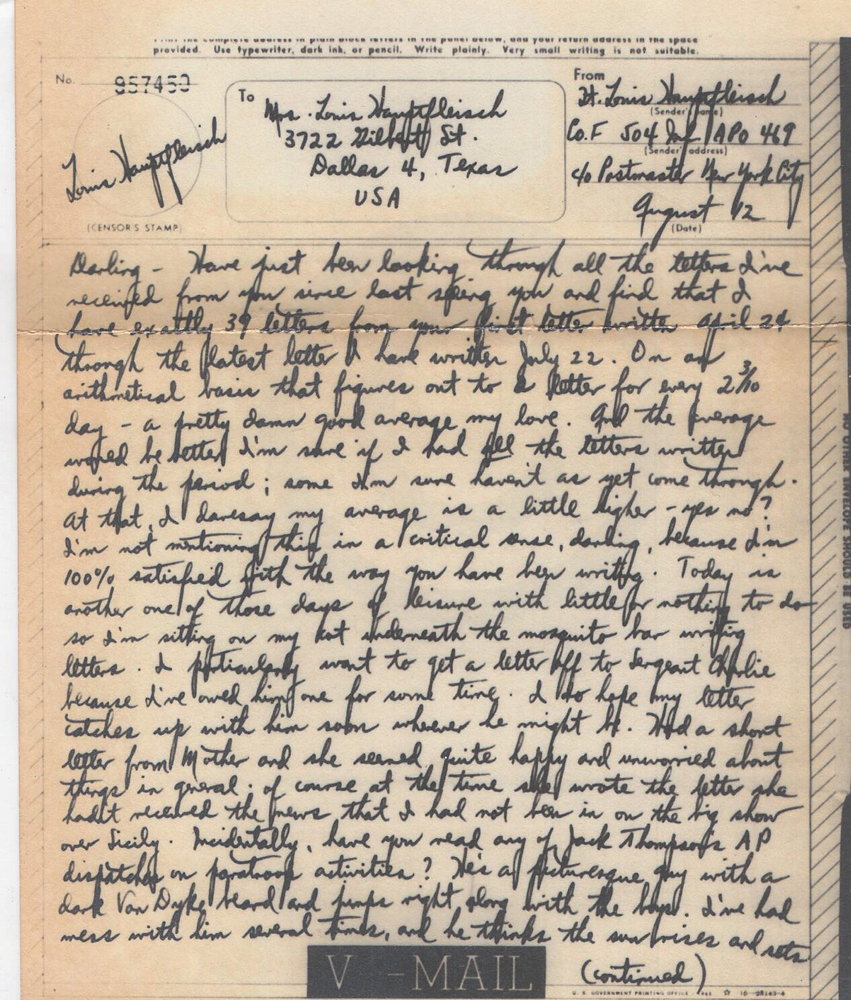 Print the complete address in plain block letters in the panel below, and your return address in the space
provided. Use typewriter, dark ink, or pencil. Write plainly. Very small writing is not suitable.
No. 957450
Louis Hauptfleisch
(CENSOR'S STAMP)
To
Mrs. Louis Hauptfleisch
3722 Gilbert St.
Dallas 4, Texas
USA
From
Lt. Louis Hauptfleisch
(Sender's name)
Co. F 504 Inf APO 469
(Sender's address)
c/o Postmaster New York City
August 12
(Date)
Darling – Have just been looking through all the letters I've
received from you since last seeing you and find that I
have exactly 39 letters from your first letter written April 24
through the latest letter I have written July 22. On an
arithmetical basis that figures out to a letter for every 2 3/10
day – a pretty damn good average my love. And the average
would be better I'm sure if I had all the letters written
during the period; some I'm sure haven't as yet come through.
At that, I daresay my average is a little higher – yes no?
I'm not mentioning this in a critical sense, darling, because I'm
100% satisfied with the way you have been writing. Today is
another one of those days of leisure with little or nothing to do
so I'm sitting on my cot underneath the mosquito bar writing
letters. I particularly want to get a letter off to Sergeant Charlie
because I've owed him one for some time. I do hope my letter
catches up with him soon wherever he might be. Had a short
letter from Mother and she seemed quite happy and unworried about
things in general; of course at the time she wrote the letter she
hadn't received the news that I had not been in on the big show
over Sicily. Incidentally, have you read any of Jack Thompson's AP
dispatches on paratroop activities? He's a picturesque guy with a
dark Van Dyke beard and jumps right along with the boys. I've had
mess with him several times, and he thinks the sun rises and sets
(continued)
V - MAIL
U. S. GOVERNMENT PRINTING OFFICE
NO OTHER ENVELOPE SHOULD BE USED